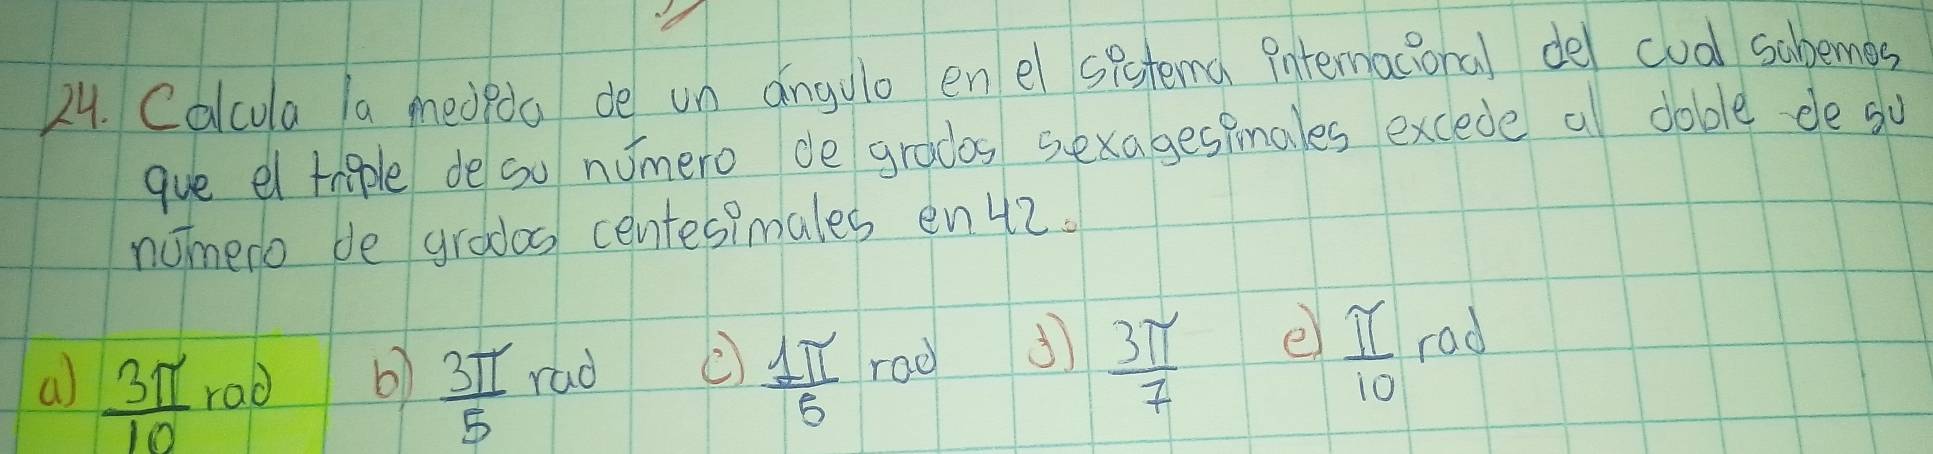 24. Calcula la medida de un ángulo en el sistema internacional del cual sabemos
que el triple de su número de grados sexagesimales excede al doble de su
número de grados centesimales en 42.
a) 3π/10 rad b) 3π/5 rad c) 1π/5 rad d) 3π/7 e) π/10 rad